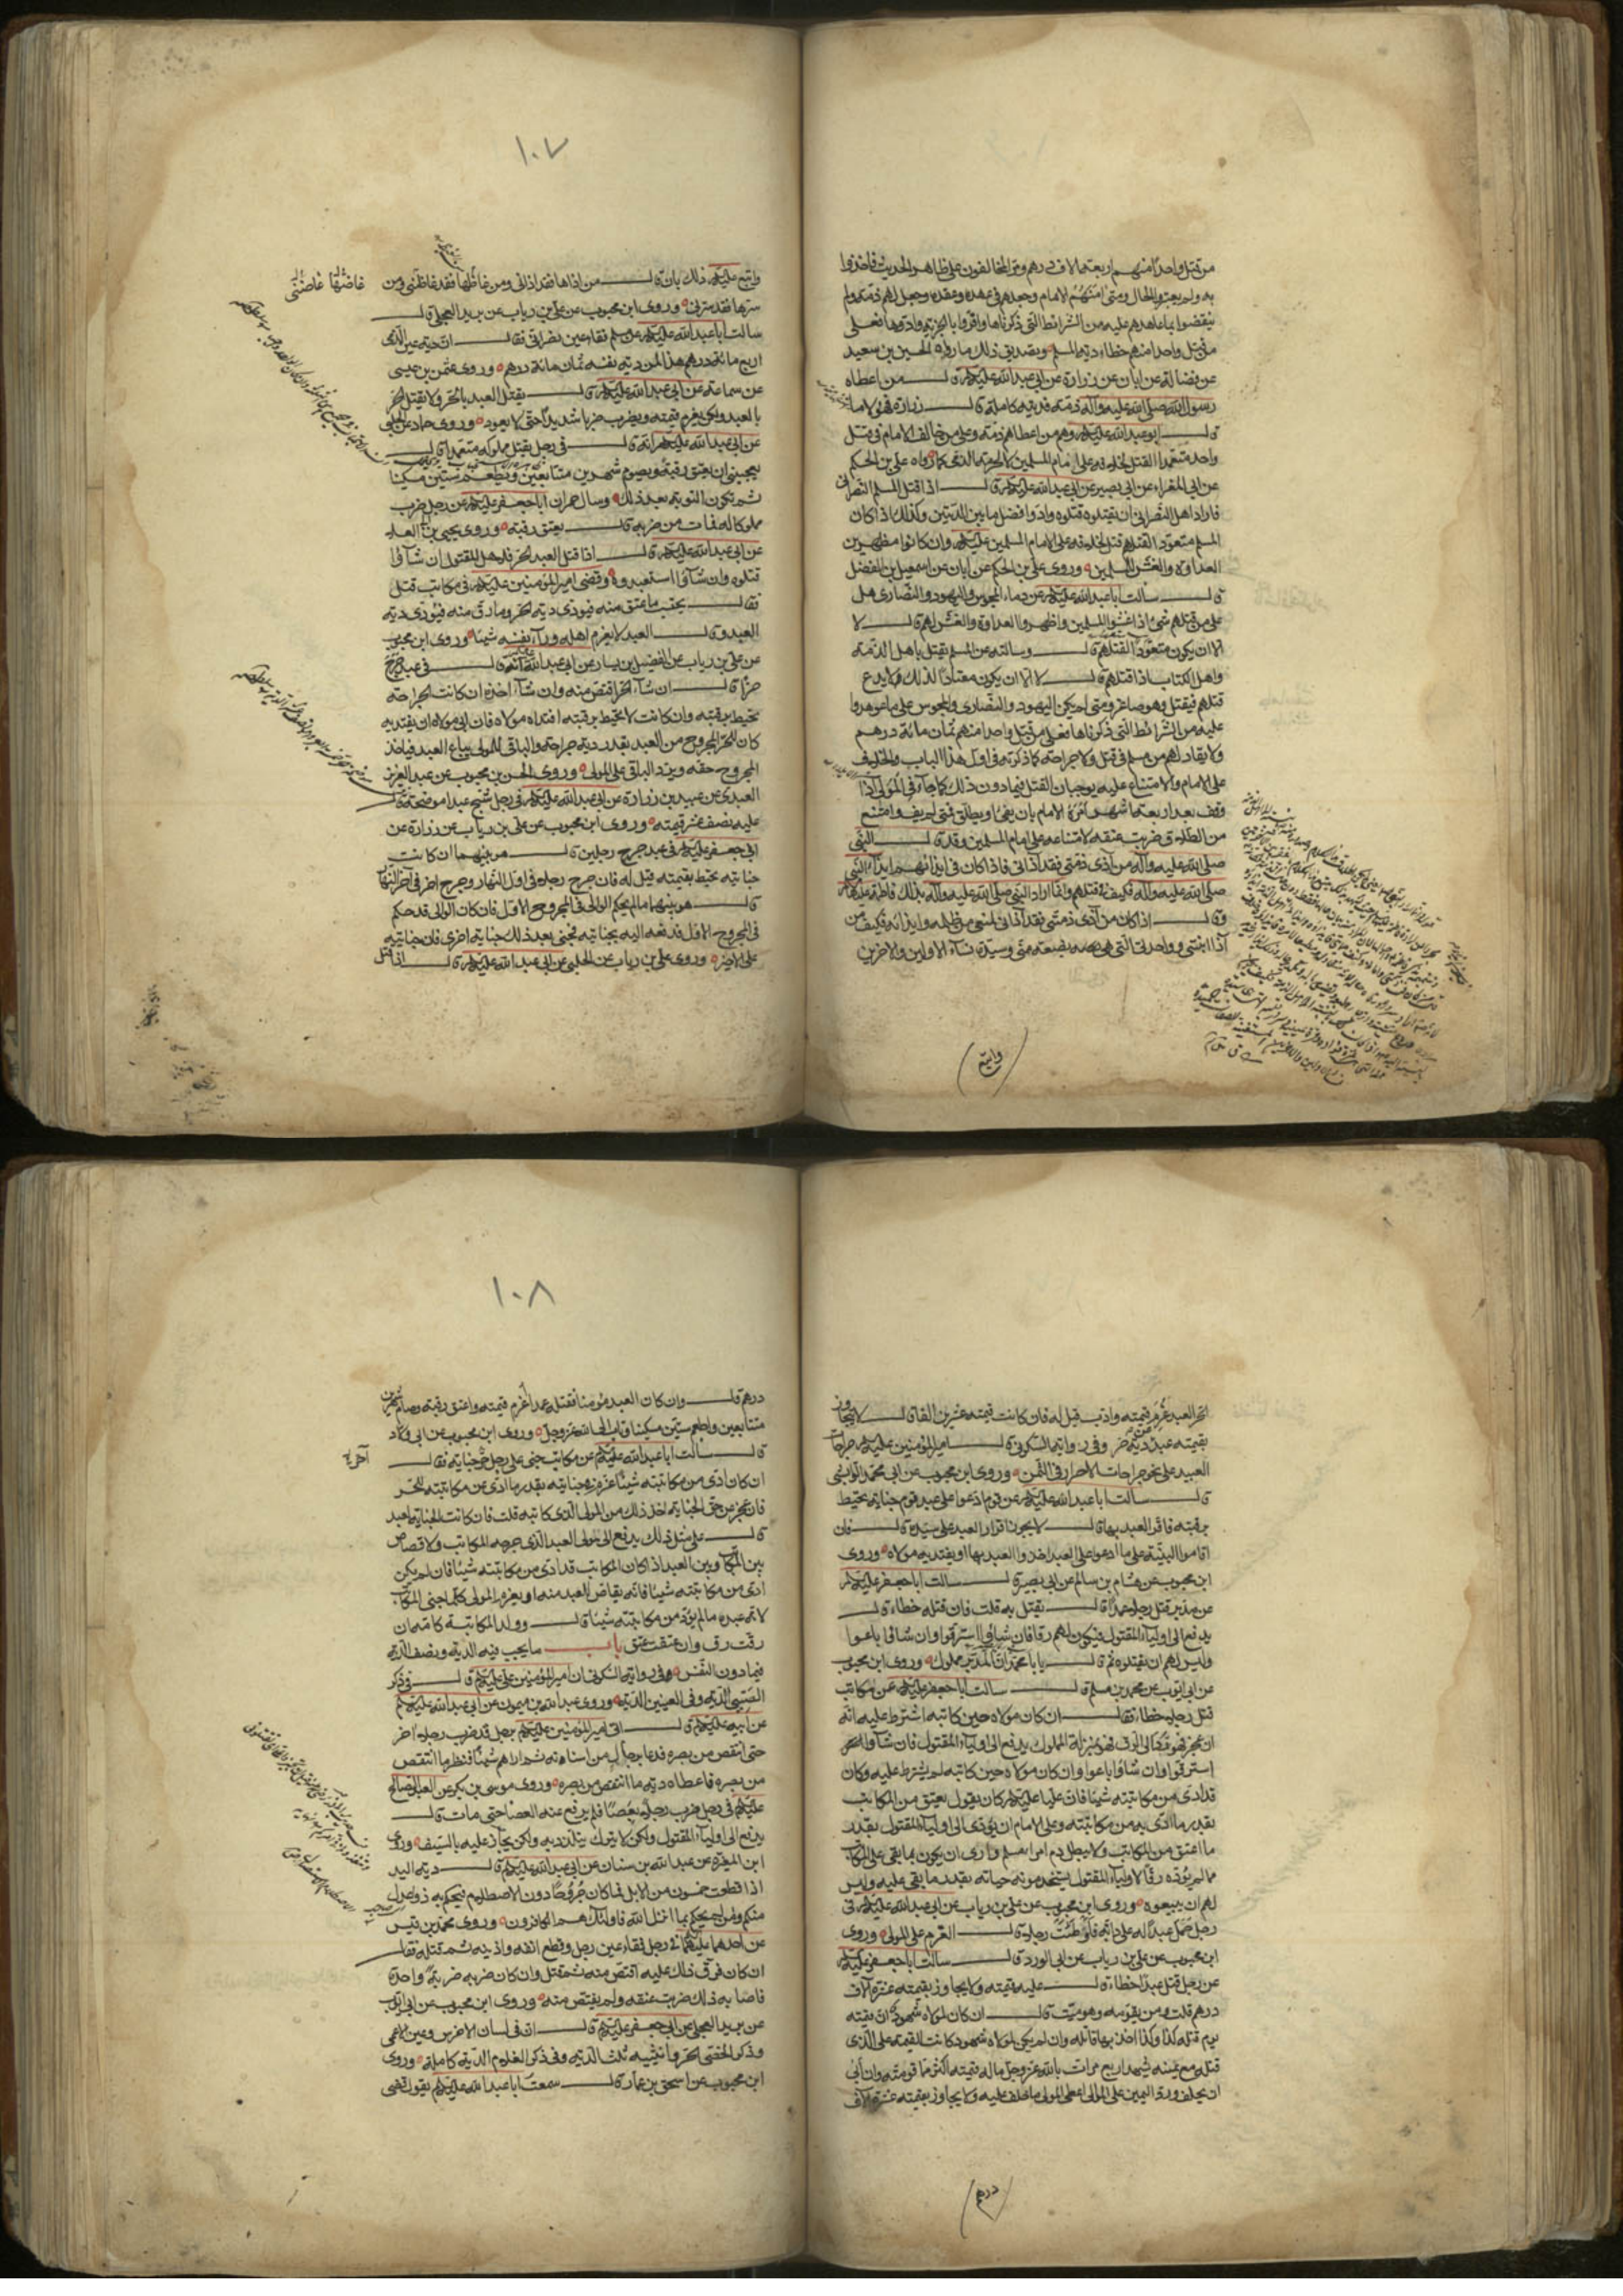 من قتل واحدا منهم اربعة الاف درهم ومر المخالفون على ظاهر الحديث فاخذوا
به ولم يعتبروا الحال ومتى امنهم الامام وجعلهم في عهده وعقده وجعل لهم ذمة ولم
ينقضوا ما عاهدهم عليه من الشرائط التي ذكرناها واقروا بالجزية وادوها فعلى
من قتل واحدا منهم خطاء دية المسلم وتصديق ذلك ما رواه الحسين بن سعيد
عن فضالة عن ابان عن زرارة عن ابي عبد الله عليه السلم قال من اعطاه
رسول الله صلى الله عليه وآله ذمة فديته كاملة قال زرارة فهؤلاء ما
قال ابو عبد الله عليه السلم وهم من اعطاهم ذمة وعلى من خالف الامام في قتل
واحد متعمدا القتل لخلافه على امام المسلمين لا لحرمة الذمي كما رواه علي بن الحكم
عن ابي المغراء عن ابي بصير عن ابي عبد الله عليه السلم قال اذا قتل المسلم النصراني
فاراد اهل النصراني ان يقتلوه قتلوه وادوا فضل ما بين الديتين وكذلك اذا كان
المسلم متعود القتلهم قتل لخلافه على الامام المسلمين عليه السلم وان كانوا مظهرين
العداوة والغش للمسلمين وروى علي بن الحكم عن ابان عن اسمعيل بن الفضل
قال سالت ابا عبد الله عليه السلم عن دماء المجوس واليهود والنصارى هل
على من قتلهم شيء اذا غشوا المسلمين واظهروا العداوة والغش لهم قال لا
الا ان يكون متعودا لقتلهم قال وسالته عن المسلم يقتل باهل الذمة
واهل الكتاب اذا قتلهم قال لا الا ان يكون معتادا لذلك لا يدع
قتلهم فيقتل وهو صاغر ومتى لم يكن اليهود والنصارى والمجوس على ما عوهدوا
عليه من الشرائط التي ذكرناها فعلى من قتل واحدا منهم ثمان مائة درهم
ولا يقاد لهم من مسلم في قتل ولا جراحة كما ذكرته في اول هذا الباب والخلاف
على الامام والامتناع عليه يوجبان القتل فيما دون ذلك كما جاء في المولى اذا
وقف بعد اربعة اشهر امره الامام بان يفيء او يطلق فمتى لم يف وامتنع
من الطلاق ضربت عنقه لامتناعه على امام المسلمين وقد قال النبي
صلى الله عليه وآله من آذى ذمتي فقد آذاني فاذا كان في ايذائهم ايذاء النبي
صلى الله عليه وآله فكيف في قتلهم وانما اراد النبي صلى الله عليه وآله بذلك فاطمة عليها السلم
وقال اذا كان من آذى ذمتي فقد آذاني لمنعي من ظلمه وايذائه فكيف من
آذا ابنتي وواحدتي التي هي بضعة مني وسيدة نساء الاولين والاخرين
واتبع
١٠٧
واتبع عليه السلم ذلك بان قال من اذاها فقد اذاني ومن غاظها فقد غاظني ومن
غاضها غاضني
سرها فقد سرني وروى ابن محبوب عن علي بن رياب عن بريد العجلي قال
سالت ابا عبد الله عليه السلم عن مسلم فقاء عين نصراني فقال ان دية عين الذمي
اربع مائة درهم هذا لمن دية نفسه ثمان مائة درهم وروى عثمن بن عيسى
عن سماعة عن ابي عبد الله عليه السلم قال يقتل العبد بالحر ولا يقتل الحر
بالعبد ولكن يغرم قيمته ويضرب ضربا شديدا حتى لا يعود وروى حماد عن الحلبي
عن ابي عبد الله عليه السلم انه قال في رجل يقتل مملوكه متعمدا قال
يعجبني ان يعتق رقبة ويصوم شهرين متتابعين ويطعم ستين مسكينا
ثم تكون التوبة بعد ذلك وسال حمران ابا جعفر عليه السلم عن رجل ضرب
مملوكا له فمات من ضربه قال يعتق رقبة وروى يحيى بن ابي العلاء
عن ابي عبد الله عليه السلم قال اذا قتل العبد الحر فلاهل المقتول ان شاؤا
قتلوه وان شاؤا استعبدوه وقضى امير المؤمنين عليه السلم في مكاتب قتل
فقال يحتسب ما عتق منه فيؤدى دية الحر وما رق منه فيؤدى دية
العبد وقال العبد لا يغرم اهله وراء نفسه شيئا وروى ابن محبوب
عن علي بن رياب عن الفضيل بن يسار عن ابي عبد الله عليه السلم انه قال في عبد جرح
حرا قال ان شاء الحر اقتص منه وان شاء اخذه ان كانت الجراحة
تحيط برقبته وان كانت لا تحيط برقبته افتداه مولاه فان ابى مولاه ان يفتديه
كان للحر المجروح من العبد بقدر دية جراحته والباقي للمولى يباع العبد فياخذ
المجروح حقه ويرد الباقي على المولى وروى الحسن بن محبوب عن عبد العزيز
العبدي عن عبيد بن زرارة عن ابي عبد الله عليه السلم في رجل شج عبدا موضحة قال
عليه نصف عشر قيمته وروى ابن محبوب عن علي بن رياب عن زرارة عن
ابي جعفر عليه السلم في عبد جرح رجلين قال هو بينهما ان كانت
جنايته تحيط بقيمته قيل له فان جرح رجلا في اول النهار وجرح اخر في آخر النهار
قال هو بينهما ما لم يحكم الوالي في المجروح الاول فان كان الوالي قد حكم
في المجروح الاول فدفعه اليه بجنايته فجنى بعد ذلك جناية اخرى فان جنايته
على الاخر وروى علي بن رياب عن الحلبي عن ابي عبد الله عليه السلم قال اذا قتل
الحر العبد غرم قيمته وادب قيل له فان كانت قيمته عشرين الفا قال لا يتجاوز
بقيمة عبد دية حر وفي رواية السكوني قال امير المؤمنين عليه السلم جراحات
العبيد على نحو جراحات الاحرار في الثمن وروى ابن محبوب عن ابي محمد الوابشي
قال سالت ابا عبد الله عليه السلم عن قوم ادعوا على عبد قوم جناية تحيط
برقبته فاقر العبد بها قال لا يجوز اقرار العبد على سيده قال فان
اقاموا البينة على ما ادعوا على العبد اخذوا العبد بها او يفتديه مولاه وروى
ابن محبوب عن هشام بن سالم عن ابي بصير قال سالت ابا جعفر عليه السلم
عن مدبر قتل رجلا عمدا قال يقتل به قلت فان قتله خطاء قال
يدفع الى اولياء المقتول فيكون لهم رقا فان شاؤا استرقوا وان شاؤا باعوا
وليس لهم ان يقتلوه ثم قال يا با محمد ان المدبر مملوك وروى ابن محبوب
عن ابي ايوب عن محمد بن مسلم قال سالت ابا جعفر عليه السلم عن مكاتب
قتل رجلا خطا فقال ان كان مولاه حين كاتبه اشترط عليه انه
ان عجز فهو رد الى الرق فهو بمنزلة المملوك يدفع الى اولياء المقتول فان شاؤا
استرقوا وان شاؤا باعوا وان كان مولاه حين كاتبه لم يشترط عليه وكان
قد ادى من مكاتبته شيئا فان عليا عليه السلم كان يقول يعتق من المكاتب
بقدر ما ادى به من مكاتبته وعلى الامام ان يؤدي الى اولياء المقتول بقدر
ما اعتق من المكاتب ولا يبطل دم امرا مسلم وارى ان يكون بما بقي على المكاتب
مما لم يؤده رقا لاولياء المقتول يستخدمونه حياته بقدر ما بقي عليه وليس
لهم ان يبيعوه وروى ابن محبوب عن علي بن رياب عن ابي عبد الله عليه السلم في
رجل حمل عبدا له على دابة فاوطئت رجلا قال الغرم على المولى وروى
ابن محبوب عن علي بن رياب عن ابي الورد قال سالت ابا جعفر عليه السلم
عن رجل قتل عبدا خطاء قال عليه قيمته ولا يجاوز بقيمته عشرة الاف
درهم قلت ومن يقومه وهو ميت قال ان كان لمولاه شهود ان قيمته
يوم قتله كذا وكذا اخذ بها قاتله وان لم يكن لمولاه شهود كانت القيمة على الذي
قتله مع يمينه يشهد اربع مرات بالله عز وجل ما له قيمة اكثر مما قومته وان ابى
ان يحلف ورد اليمين على المولى اعطى المولى ما حلف عليه ولا يجاوز بقيمته عشرة آلاف
درهم
١٠٨
درهم قال وان كان العبد مؤمنا فقتله عمدا اغرم قيمته واعتق رقبة وصام شهرين
متتابعين واطعم ستين مسكينا وتاب الى الله عز وجل وروى ابن محبوب عن ابي ولاد
قال سالت ابا عبد الله عليه السلم عن مكاتب جنى على رجل حر جناية فقال
ان كان ادى من مكاتبته شيئا غرم في جنايته بقدر ما ادى من مكاتبته للحر
فان عجز عن حق الجناية اخذ ذلك من المولى الذي كاتبه قلت فان كانت الجناية لعبد
قال على مثل ذلك يدفع الى مولى العبد الذي جرحه المكاتب ولا قصاص
بين المكاتب وبين العبد اذا كان المكاتب قد ادى من مكاتبته شيئا فان لم يكن
ادى من مكاتبته شيئا فانه يقاص للعبد منه او يغرم المولى كلما جنى المكاتب
لانه عبده ما لم يؤد من مكاتبته شيئا قال وولد المكاتبة كامه ان
رقت رق وان عتقت عتق باب ما يجب فيه الدية ونصف الدية
فيما دون النفس وفي رواية السكوني ان امير المؤمنين علي عليه السلم قال في ذكر
الصبي الدية وفي العينين الدية وروى عبد الله بن ميمون عن ابي عبد الله عليه السلم
عن ابيه عليه السلم قال اتى امير المؤمنين عليه السلم برجل قد ضرب رجلا اخر
حتى انتقص من بصره فدعا برجال من اسنانه ثم اراهم شيئا فنظر ما انتقص
من بصره فاعطاه دية ما انتقص من بصره وروى موسى بن بكر عن العبد الصالح
عليه السلم في رجل ضرب رجلا بعصا فلم يرفع عنه العصا حتى مات قال
يدفع الى اولياء المقتول ولكن لا يترك يتلذذ به ولكن يجاز عليه بالسيف وروى
ابن المغيرة عن عبد الله بن سنان عن ابي عبد الله عليه السلم قال دية اليد
اذا قطعت خمسون من الابل فما كان جروحا دون الاصطلام فيحكم به ذوا عدل
منكم ومن لم يحكم بما انزل الله فاولئك هم الكافرون وروى محمد بن قيس
عن احدهما عليهما السلم في رجل فقاء عين رجل وقطع انفه واذنيه ثم قتله فقال
ان كان فرق ذلك عليه اقتص منه ثم قتل وان كان ضربه ضربة واحدة
فاصابه ذلك ضربت عنقه ولم يقتص منه وروى ابن محبوب عن ابي ايوب
عن بريد العجلي عن ابي جعفر عليه السلم قال ان في لسان الاخرس وعين الاعمى
وذكر الخصي الحر وانثييه ثلث الدية وفي ذكر الغلام الدية كاملة وروى
ابن محبوب عن اسحق بن عمار قال سمعت ابا عبد الله عليه السلم يقول قضى